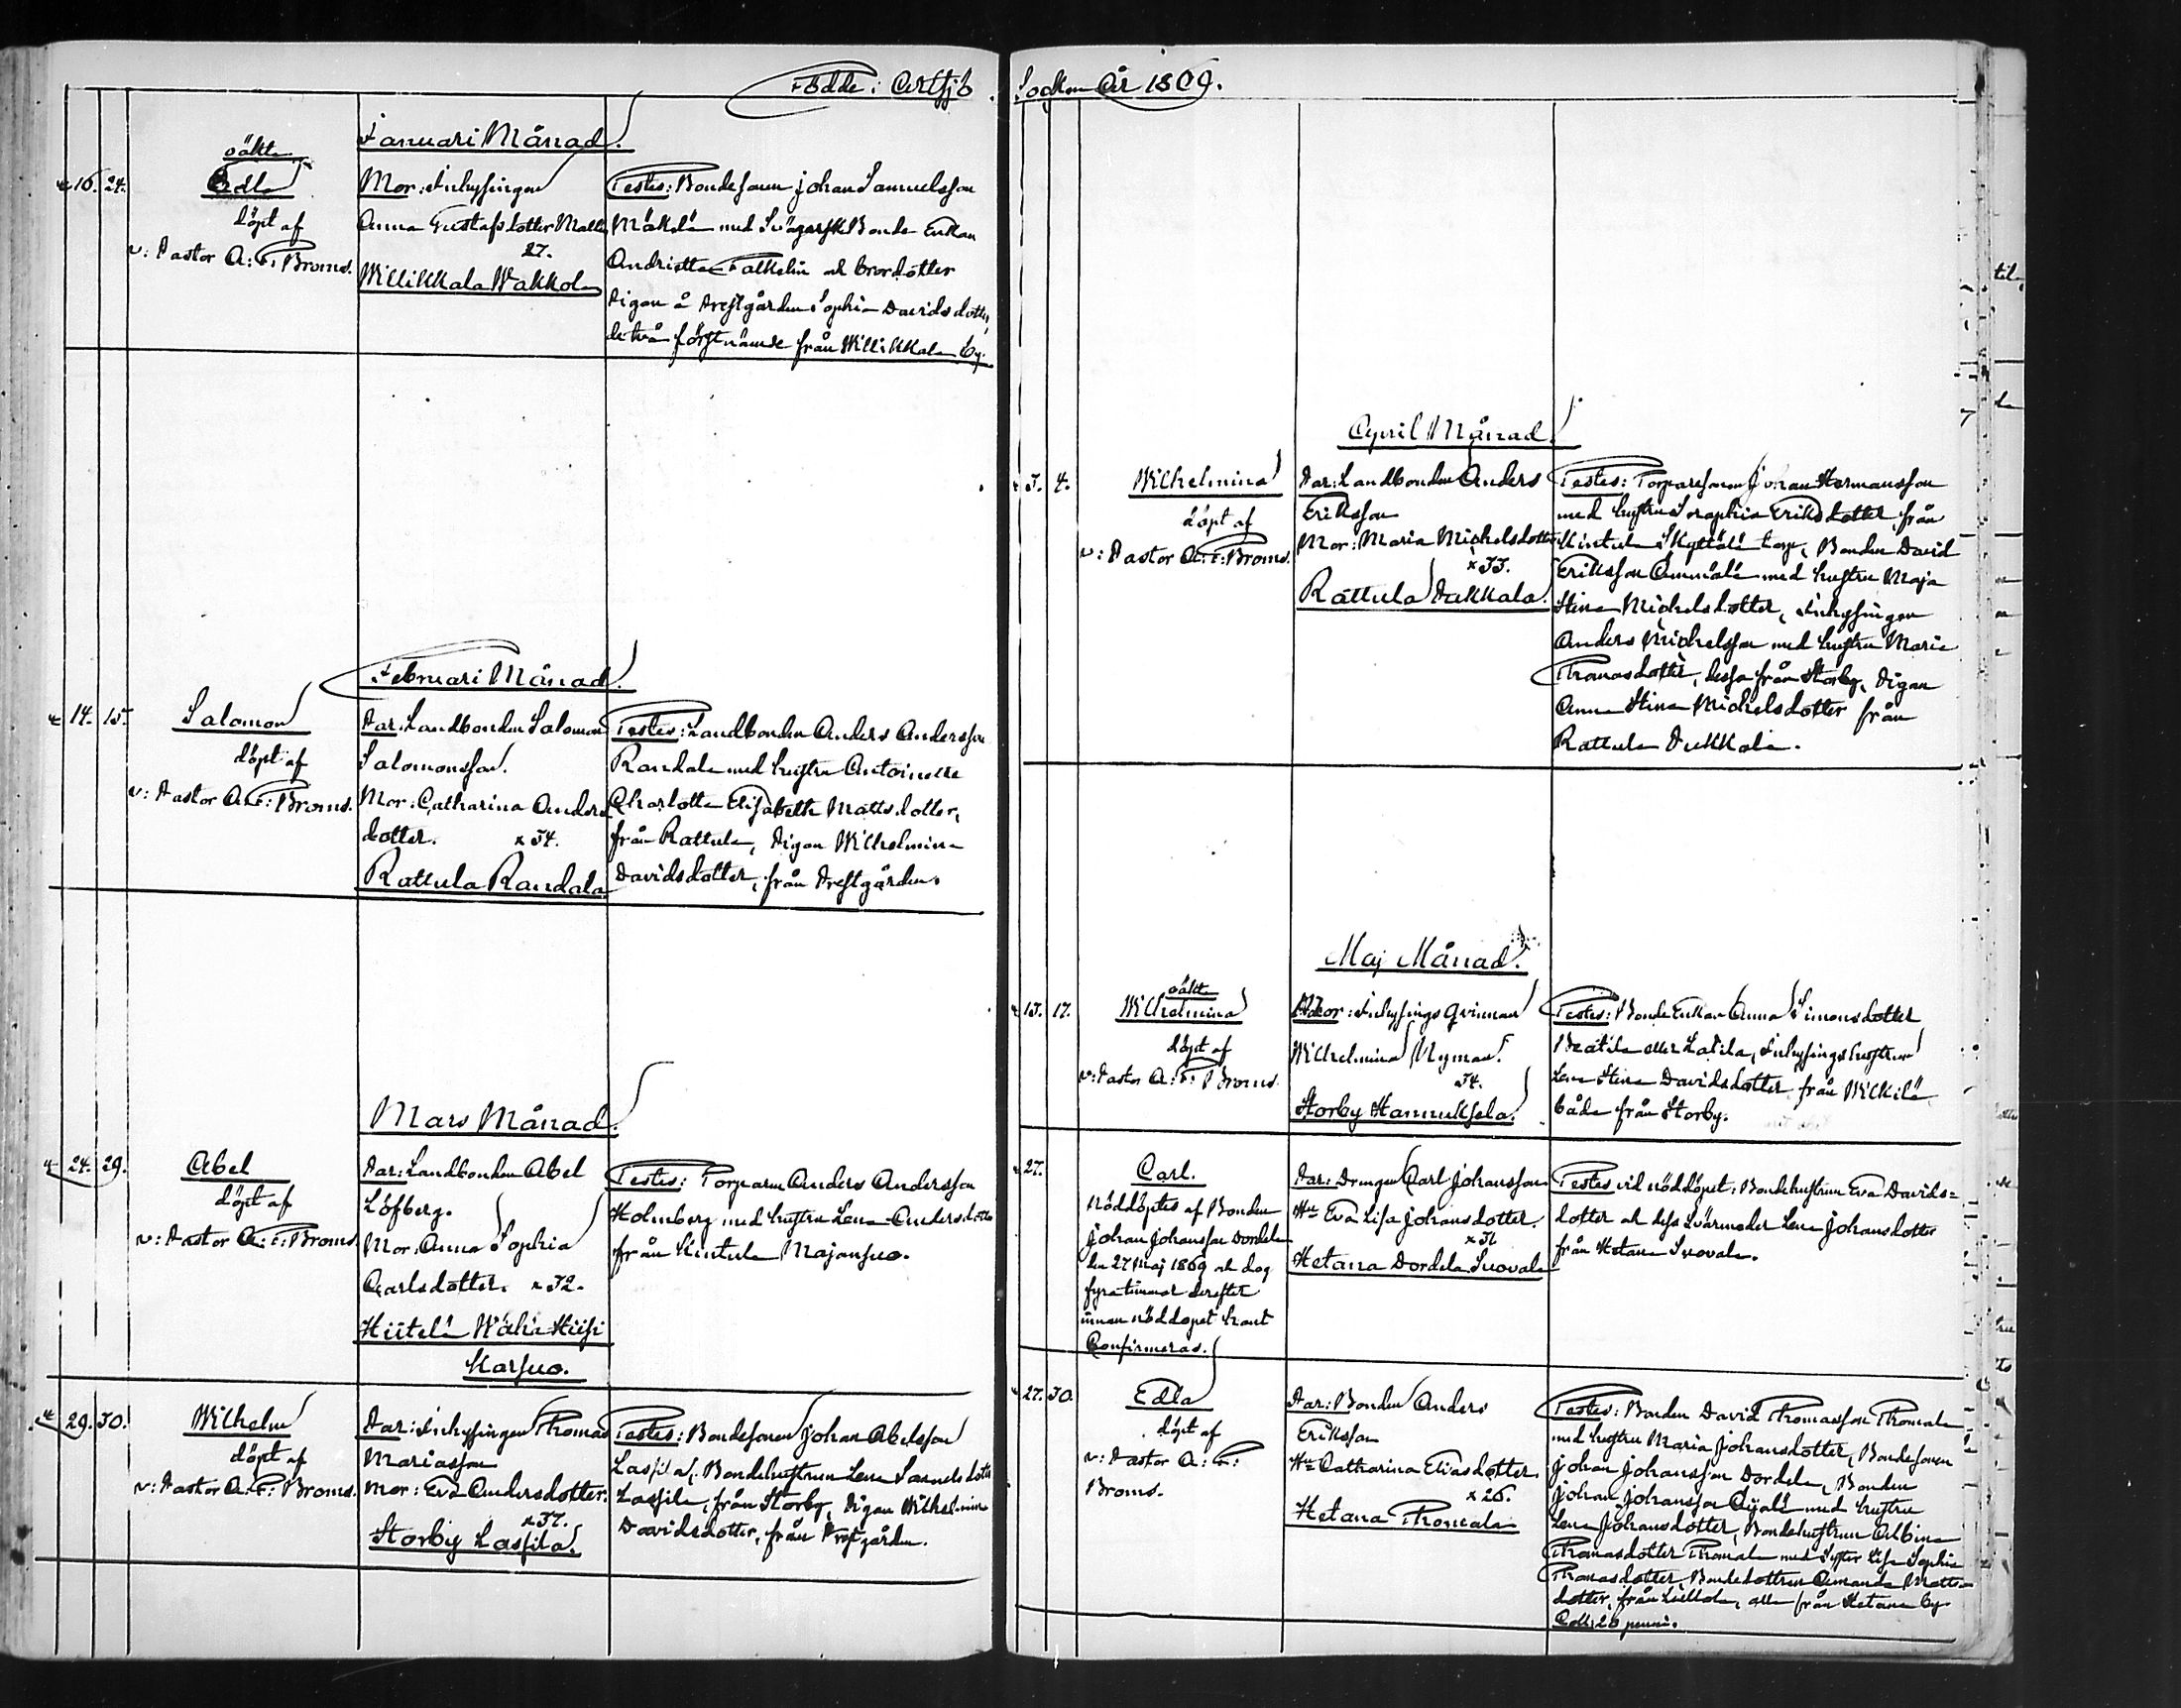 Födde i Artsjö Socken År 1869.
Januari Månad.
16. 24.
oäkta
Edla
döpt af
v: Pastor A: F: Broms.
Mor: Inhysingen
Anna Gustafsdotter Malle
27.
Willikkala Wakkola
Testes: Bondesonen Johan Samuelsson
Mäkelä med Svägerska Bonde Enkan
Andrietta Falkelin och brordotter
Pigan å Prestgården Sophia Davidsdotter,
de två förstnämde från Willikkala by.
Februari Månad.
14. 15.
Salomon
döpt af
v: Pastor A: F: Broms.
Far: Landbonden Salomon
Salomonsson.
Mor: Catharina Anders
dotter. x 34.
Rattula Randala
Testes: Landbonden Anders Andersson
Randala med hustru Antoinette
Charlotta Elisabeth Mattsdotter,
från Rattula, Pigan Wilhelmina
Davidsdotter, från Prestgården.
Mars Månad.
24. 29.
Abel
döpt af
v: Pastor A: F: Broms.
Far: Landbonden Abel
Löfberg.
Mor: Anna Sophia
Carlsdotter. x 32.
Hiitelä Wähä-Hiisi
Karsuo.
Testes: Torparen Anders Andersson
Holmberg med hustru Lena Andersdotter
från Kintula Majansuo.
29. 30.
Wilhelm
döpt af
v: Pastor A: F: Broms.
Far: Inhysingen Thomas
Mariasson
Mor: Eva Andersdotter.
x 37.
Storby Lassila.
Testes: Bondesonen Johan Abelsson
Lassila, Bondehustrun Lena Samuelsdotter
Lassila, från Storby, Pigan Wilhelmina
Davidsdotter, från Prestgården.
April Månad.
3. 4.
Wilhelmina
döpt af
v: Pastor A: F: Broms.
Far: Landbonden Anders
Eriksson
Mor: Maria Michelsdotter
x 33.
Rattula Pukkala.
Testes: Torparesonen Johan Hermansson
med hustru Seraphia Eriksdotter från
Kintula Skyttälä torp, Bonden David
Eriksson Ammälä med hustru Maja
Stina Michelsdotter, Inhysingen
Anders Michelsson med hustru Maria
Thomasdotter, dessa från Storby, Pigan
Anna Stina Michelsdotter från
Rattula Pukkala.
Maj Månad.
13. 17.
oäkta
Wilhelmina
döpt af
v: Pastor A: F: Broms.
Mor: Inhysings qvinnan
Wilhelmina Nyman.
34.
Storby Hannuksela.
Testes: Bonde Enkan Anna Simonsdotter
eller Latila, Inhysingshustrun
Lena Stina Davidsdotter från Wilkilä
båda från Storby.
27.
Carl.
Nöddöptes af Bonden
Johan Johansson Dordela
den 27 Maj 1869 och dog
fyra timmar derefter
innan nöddopet hant
Confirmeras.
Far: Drengen Carl Johansson
Hu Eva Lisa Johansdotter.
x 31
Hetana Dordela Suovala
Testes vid nöddopet: Bondehustrun Eva Davids=
dotter och dess Svärmoder Lena Johansdotter
från Hetana Suovala.
27. 30.
Edla
döpt af
v: Pastor A: F:
Broms.
Far: Bonden Anders
Eriksson
Hu Catharina Eliasdotter.
x 26.
Hetana Thomala
Testes: Bonden David Thomasson Thomala
med hustru Maria Johansdotter, Bondesonen
Johan Johansson Dordela, Bonden
Johan Johansson Äijälä med hustru
Lena Johansdotter, Bondehustrun Albina
Thomasdotter Thomala med Syster Lisa Sophia
Thomasdotter, Bondedottren Amanda Matts=
dotter, från alla från Hetana by.
Coll: 20 penni.